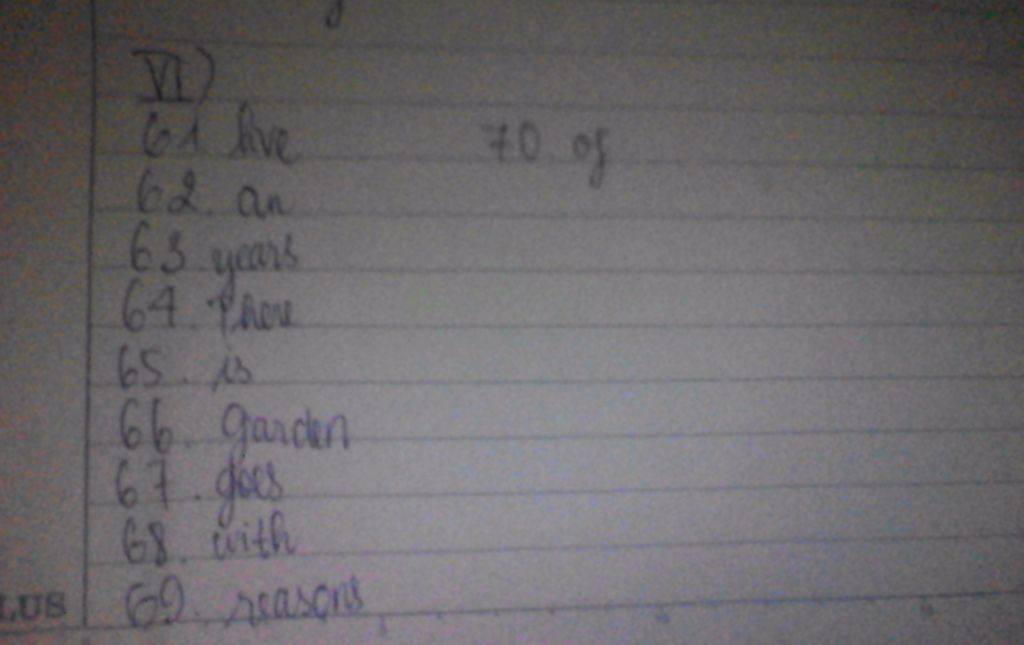 VI)
61 live 70 of
62. an
63 years
64. There
65. is
66. garden
67. goes
68. with
69. reasons
LUS